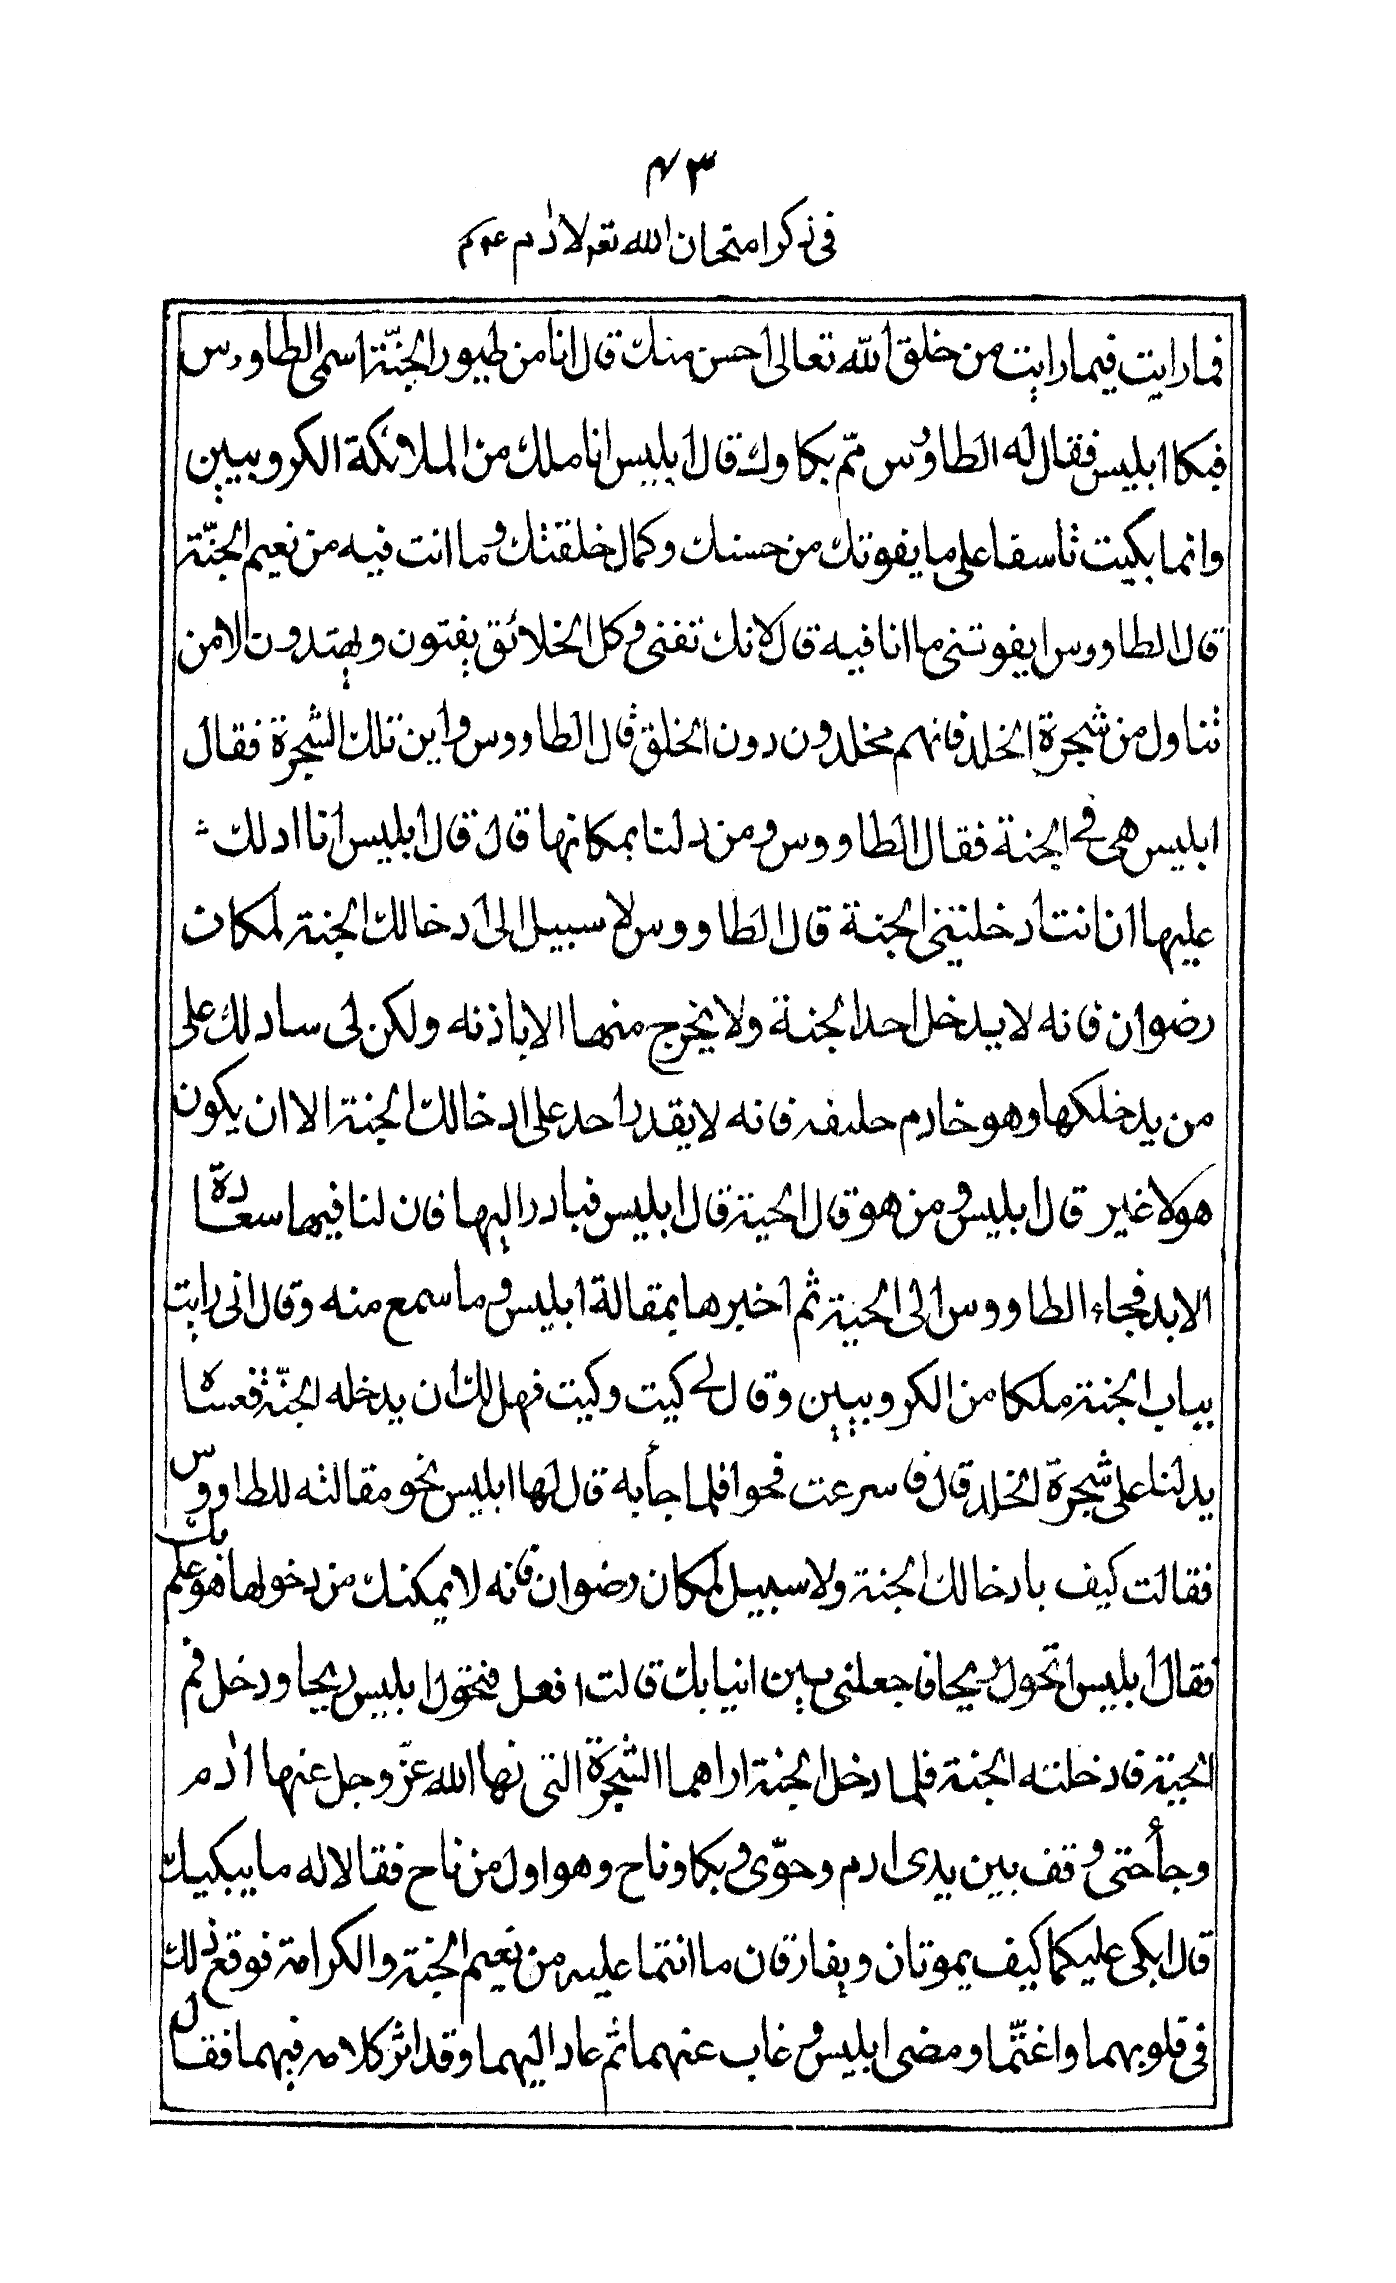 ٤٣
في ذكر امتحان الله تعه لادم عم
فما رايت فيما رايت من خلق الله تعالى احسن منك قال انا من طيور الجنّة اسمى الطاووس
فبكا ابليس فقال له الطاووس ممّ بكاوك قال ابليس انا ملك من الملائكة الكروبيين
وانما بكيت تاسفا على ما يفوتك من حسنك وكمال خلقتك وما انت فيه من نعيم الجنّة
قال الطاووس ايفوتنى ما انا فيه قال لانك تفنى وكل الخلائق يفتون ويهتدون الا من
تناول من شجرة الخلد فانهم مخلدون دون الخلق قال الطاووس واين تلك الشجرة فقال
ابليس هى في الجنة فقال الطاووس ومن دلنا بمكانها قال قال ابليس انا ادلك
عليها ان انت ادخلتني الجنة قال الطاووس لا سبيل الى ادخالك الجنة لمكان
رضوان فانه لا يدخل احد الجنة ولا يخرج منها الا باذنه ولكن لى سادلك على
من يدخلكها وهو خادم حليفه فانه لا يقدر احد على ادخالك الجنة الا ان يكون
هو لا غير قال ابليس ومن هو قال الحية قال ابليس فبادر اليها فان لنا فيها سعادة
الابد فجاء الطاووس الى الحية ثم اخبرها بمقالة ابليس وما سمع منه وقال انى رايت
بباب الجنة ملكا من الكروبيين وقال لى كيت وكيت فهل لك ان يدخله الجنّة فعساه
يدلنا على شجرة الخلد قال فاسرعت نحوا فلما جأبه قال لها ابليس نحو مقالته للطاووس
فقالت كيف بادخالك الجنة ولا سبيل لمكان رضوان فانه لا يمكنك من دخولها هو علم بك
فقال ابليس اتحول ريحا فاجعلنى بين انيابك قالت افعل فتحوّل ابليس ريحا ودخل فم
الحية فادخلته الجنة فلما دخل الجنة اراهما الشجرة التى نها الله عزّ وجل عنها ادم
وجأ حتى وقف بين يدى ادم وحوّى وبكا وناح وهو اول من ناح فقالا له ما يبكيك
قال ابكى عليكما كيف يموتان ويفارقان ما انتما عليه من نعيم الجنة والكرامة فوقع ذلك
في قلوبهما واغتمّا ومضى ابليس وغاب عنهما ثم عاد اليهما وقد اثر كلامه فيهما فقال